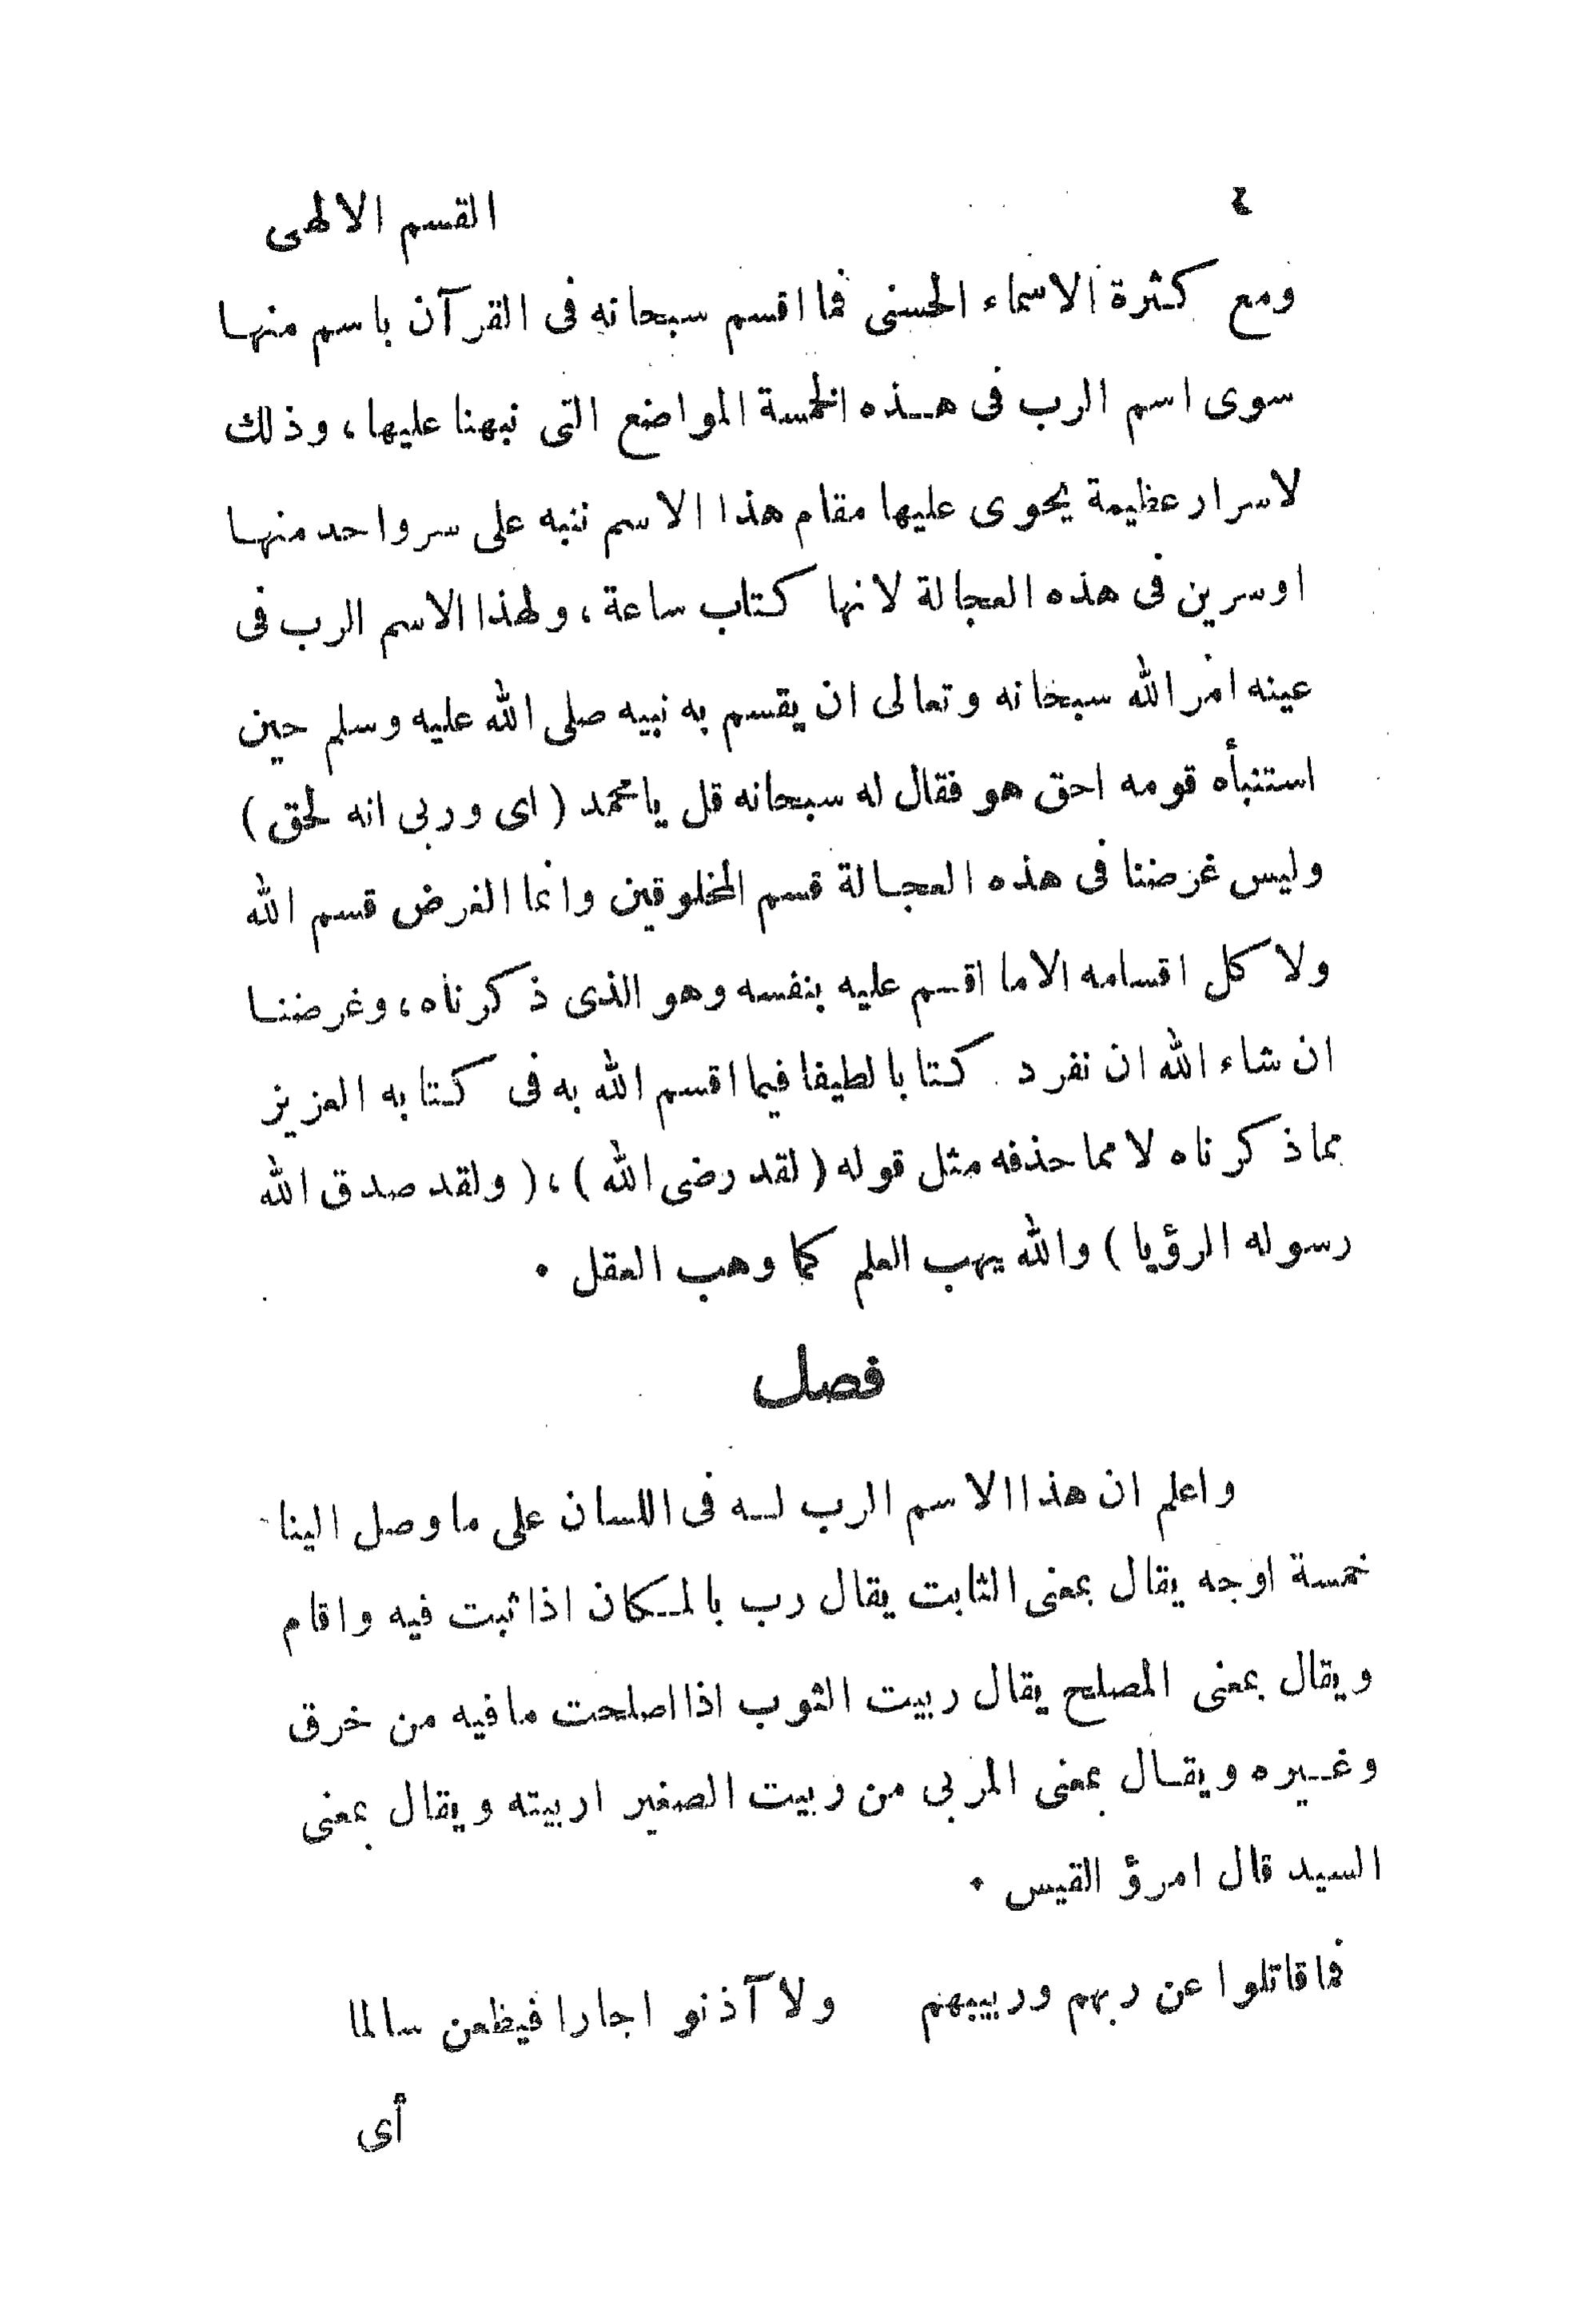 ٤ القسم الالهى
ومع كثرة الاسماء الحسنى فما اقسم سبحانه فى القرآن باسم منها
سوى اسم الرب فى هذه الخمسة المواضع التى نبهنا عليها، وذلك
لاسرار عظيمة يحوى عليها مقام هذا الاسم ننبه على سر واحد منها
او سرين فى هذه العجالة لانها كتاب ساعة، ولهذا الاسم الرب فى
عينه امر الله سبحانه وتعالى ان يقسم به نبيه صلى الله عليه وسلم حين
استنبأه قومه احق هو فقال له سبحانه قل يا محمد (اى وربى انه لحق)
وليس غرضنا فى هذه العجالة قسم المخلوقين وانما الغرض قسم الله
ولا كل اقسامه الا ما اقسم عليه بنفسه وهو الذى ذكرناه، وغرضنا
ان شاء الله ان نفرد كتابا لطيفا فيما اقسم الله به فى كتابه العزيز
بما ذكرناه لا مما حذفه مثل قوله (لقد رضى الله)، (ولقد صدق الله
رسوله الرؤيا) والله يهب العلم كما وهب العقل.
فصل
واعلم ان هذا الاسم الرب له فى اللسان على ما وصل الينا
خمسة اوجه يقال بمعنى الثابت يقال رب بالمكان اذا ثبت فيه واقام
ويقال بمعنى المصلح يقال ربيت الثوب اذا اصلحت ما فيه من خرق
وغيره ويقال بمعنى المربى من ربيت الصغير اربيته ويقال بمعنى
السيد قال امرؤ القيس.
فما قاتلوا عن ربهم وربيبهم ولا آذنوا جارا فيظعن سالما
أى